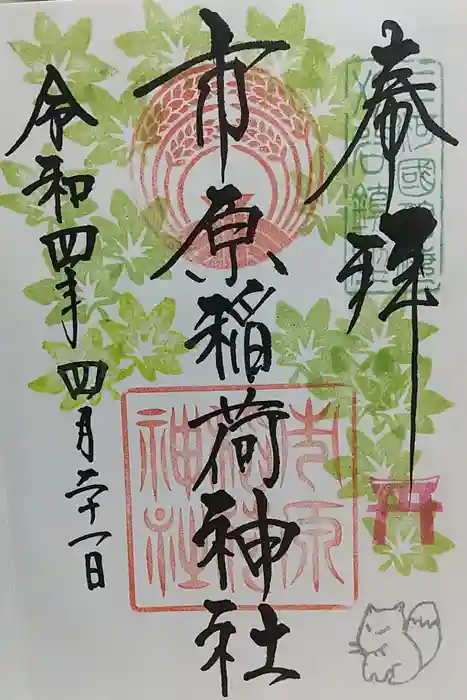 奉拝
三河國
市原稲荷神社
市原
稲荷
神社
令和四年四月二十一日